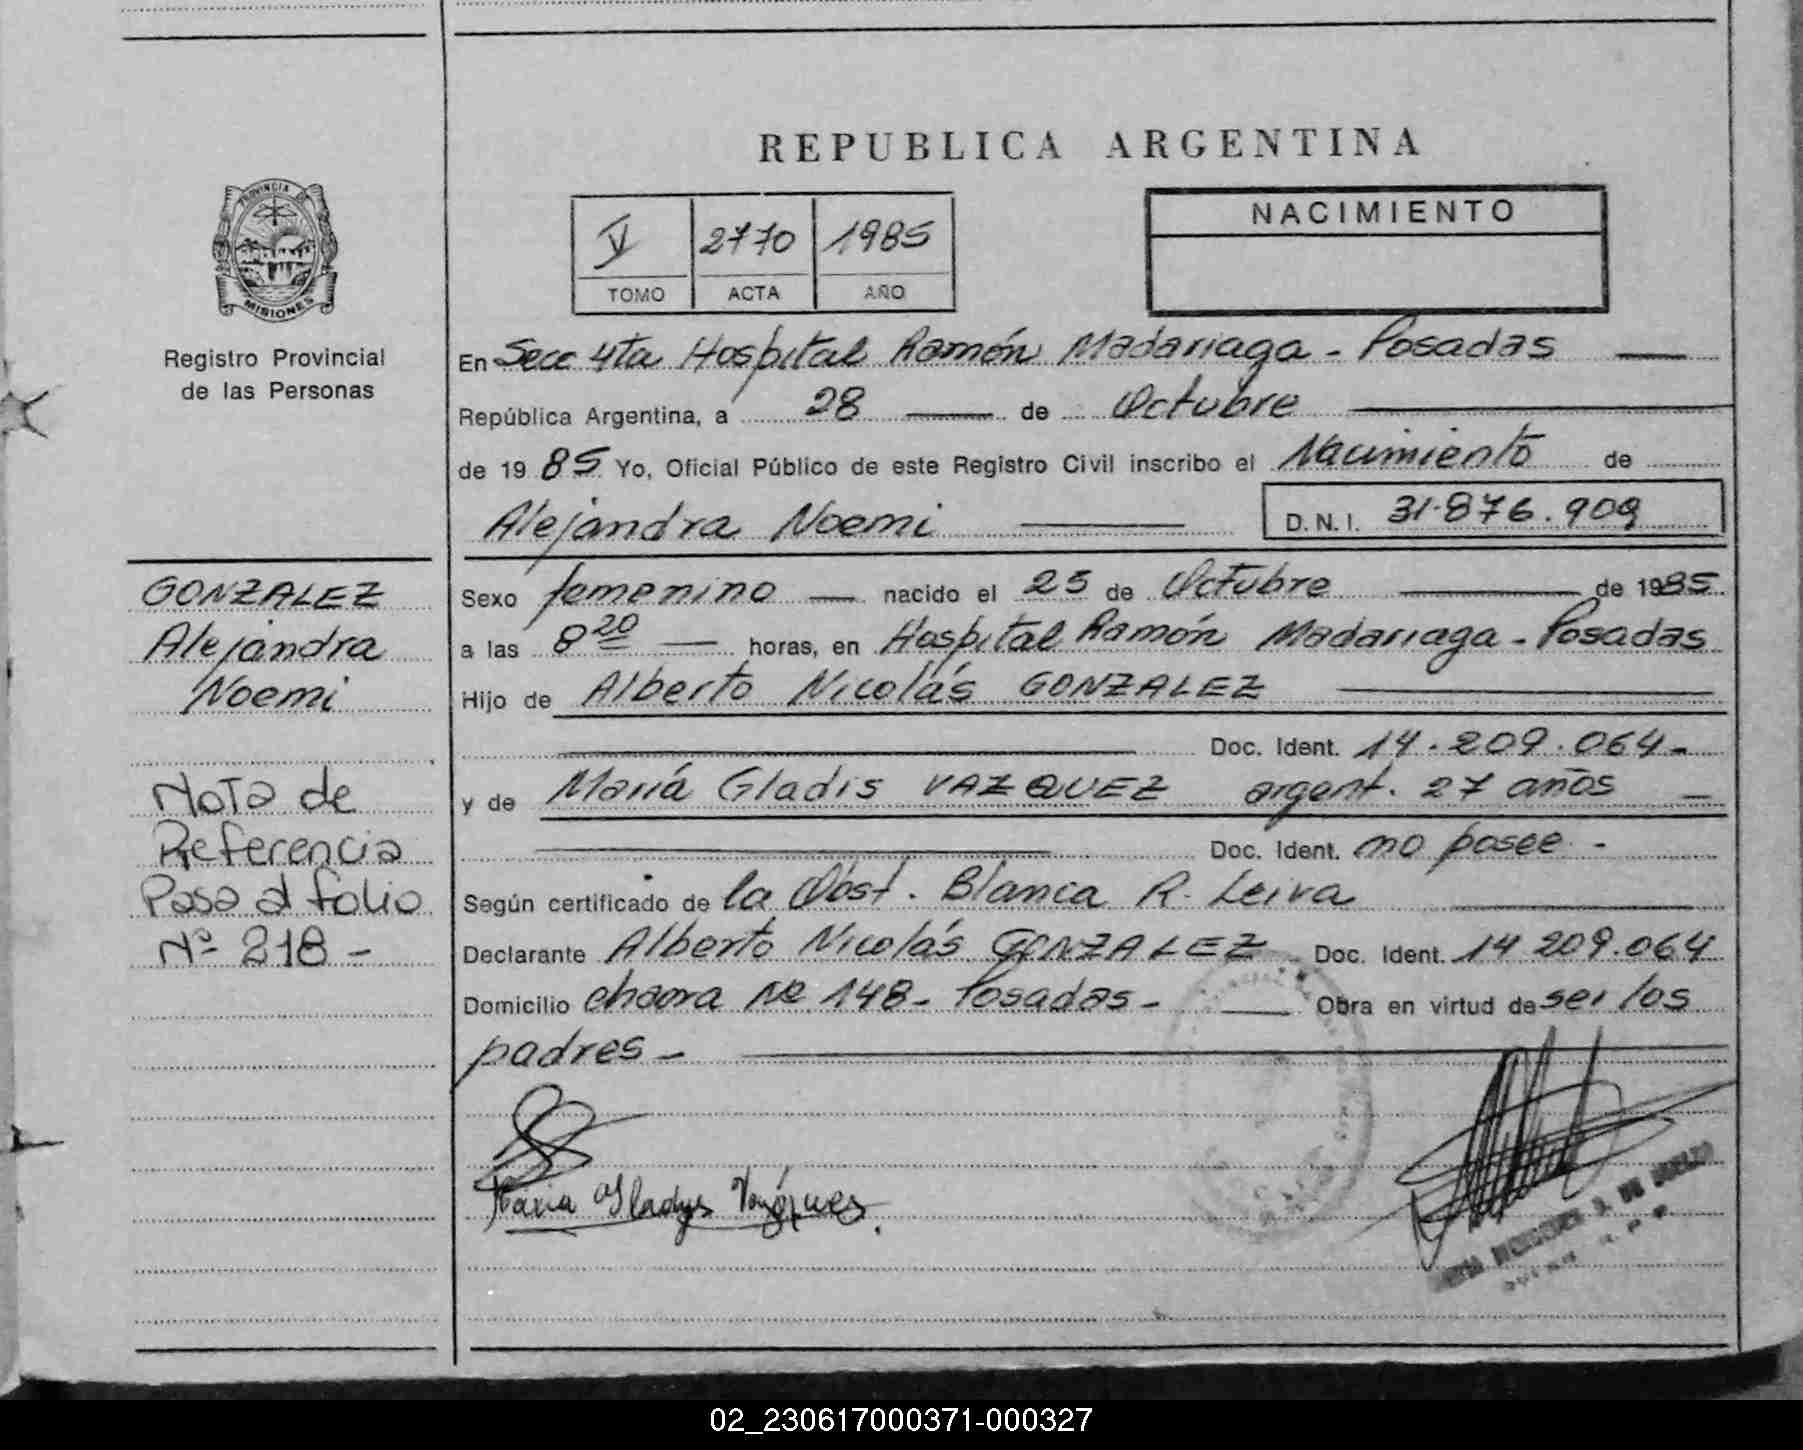 REPUBLICA ARGENTINA
PROVINCIA DE
MISIONES
Registro Provincial
de las Personas
V 2770 1985
TOMO ACTA AÑO
NACIMIENTO
En Secc 4ta Hospital Ramón Madariaga - Posadas
República Argentina, a 28 de Octubre
de 1985 Yo, Oficial Público de este Registro Civil inscribo el Nacimiento de
Alejandra Noemi D.N.I. 31.876.909
GONZALEZ
Alejandra
Noemi
Nota de
Referencia
Pasa al folio
Nº 218 -
Sexo femenino nacido el 25 de Octubre de 1985
a las 8 20 horas, en Hospital Ramón Madariaga - Posadas
Hijo de Alberto Nicolás GONZALEZ
Doc. Ident. 14.209.064-
y de María Gladis VAZQUEZ argent. 27 años
Doc. Ident. no posee -
Según certificado de la Obst. Blanca R. Leiva
Declarante Alberto Nicolás GONZALEZ Doc. Ident. 14 209.064
Domicilio chacra Nº 148- Posadas- Obra en virtud de ser los
padres-
Maria Gladys Vazques.
02_230617000371-000327